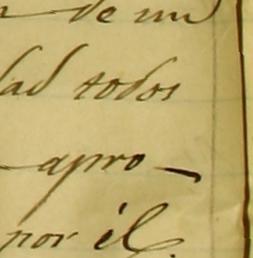 de un
dad todos
apro-
por él.